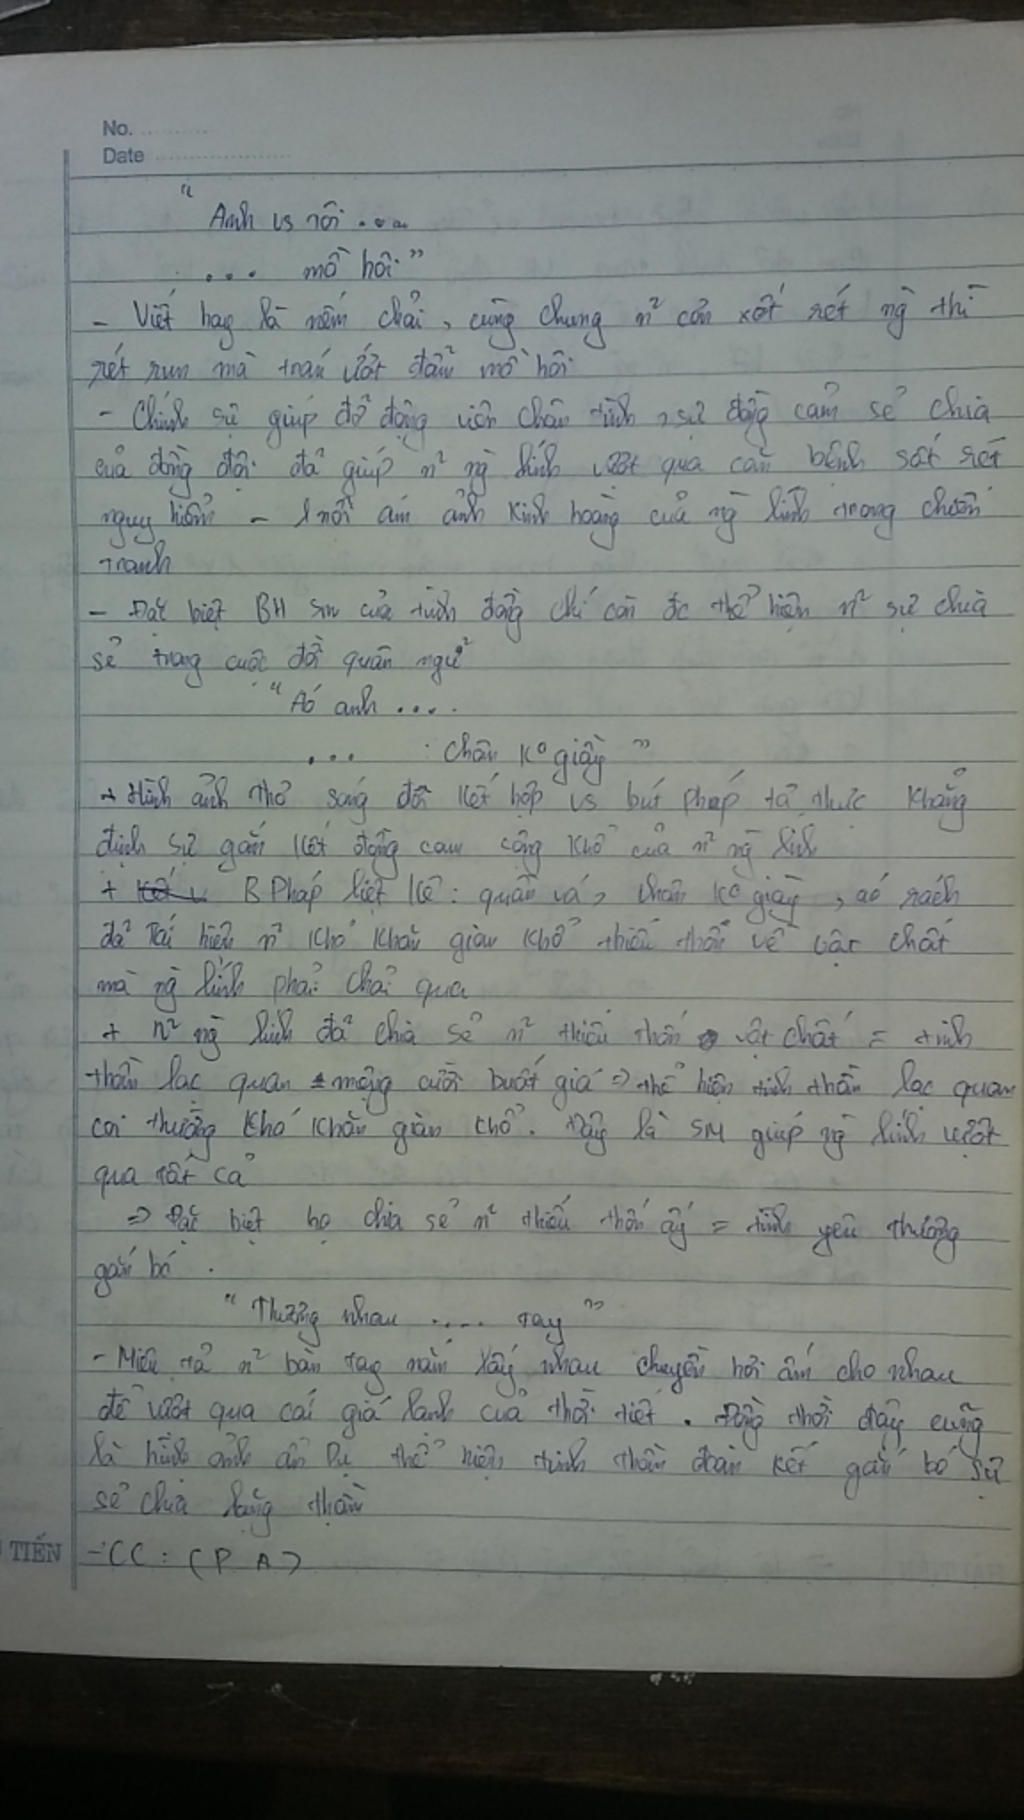 No. ............
Date ......................
"Anh vs tôi ....
.... mồ hôi"
- Viết hay là nếm trải, cùng chung n² cơn sốt rét ng thì
rét run mà trán ướt đẫm mồ hôi
- Chính sự giúp đỡ động viên chân tình, sự đồng cảm sẻ chia
của đồng đội đã giúp n² ng lính vượt qua căn bệnh sốt rét
nguy hiểm - 1 nỗi ám ảnh kinh hoàng của ng lính trong chiến
tranh
- Đặc biệt BH SM của tình đồng chí còn đc thể hiện n² sự chia
sẻ trong cuộc đời quân ngũ
"Áo anh ....
... chân ko giày"
+ Hình ảnh thơ sóng đôi kết hợp vs bút pháp tả thực khẳng
định sự gắn kết đồng cam cộng khổ của n² ng lính
+ B Pháp liệt kê: quần vá, chân ko giày, áo rách
đã tái hiện n² khó khăn gian khổ thiếu thốn về vật chất
mà ng lính phải trải qua
+ n² ng lính đã chia sẻ n² thiếu thốn vật chất = tinh
thần lạc quan miệng cười buốt giá => thể hiện tinh thần lạc quan
coi thường khó khăn gian khổ. Đây là SM giúp ng lính vượt
qua tất cả
=> Đặc biệt họ chia sẻ n² thiếu thốn ấy = tình yêu thương
gắn bó.
"Thương nhau .... tay"
- Miêu tả n² bàn tay nắm lấy nhau chuyền hơi ấm cho nhau
để vượt qua cái giá lạnh của thời tiết. Đồng thời đây cũng
là hình ảnh ẩn dụ thể hiện tinh thần đoàn kết gắn bó sự
sẻ chia lặng thầm
TIẾN - CC: (P A)